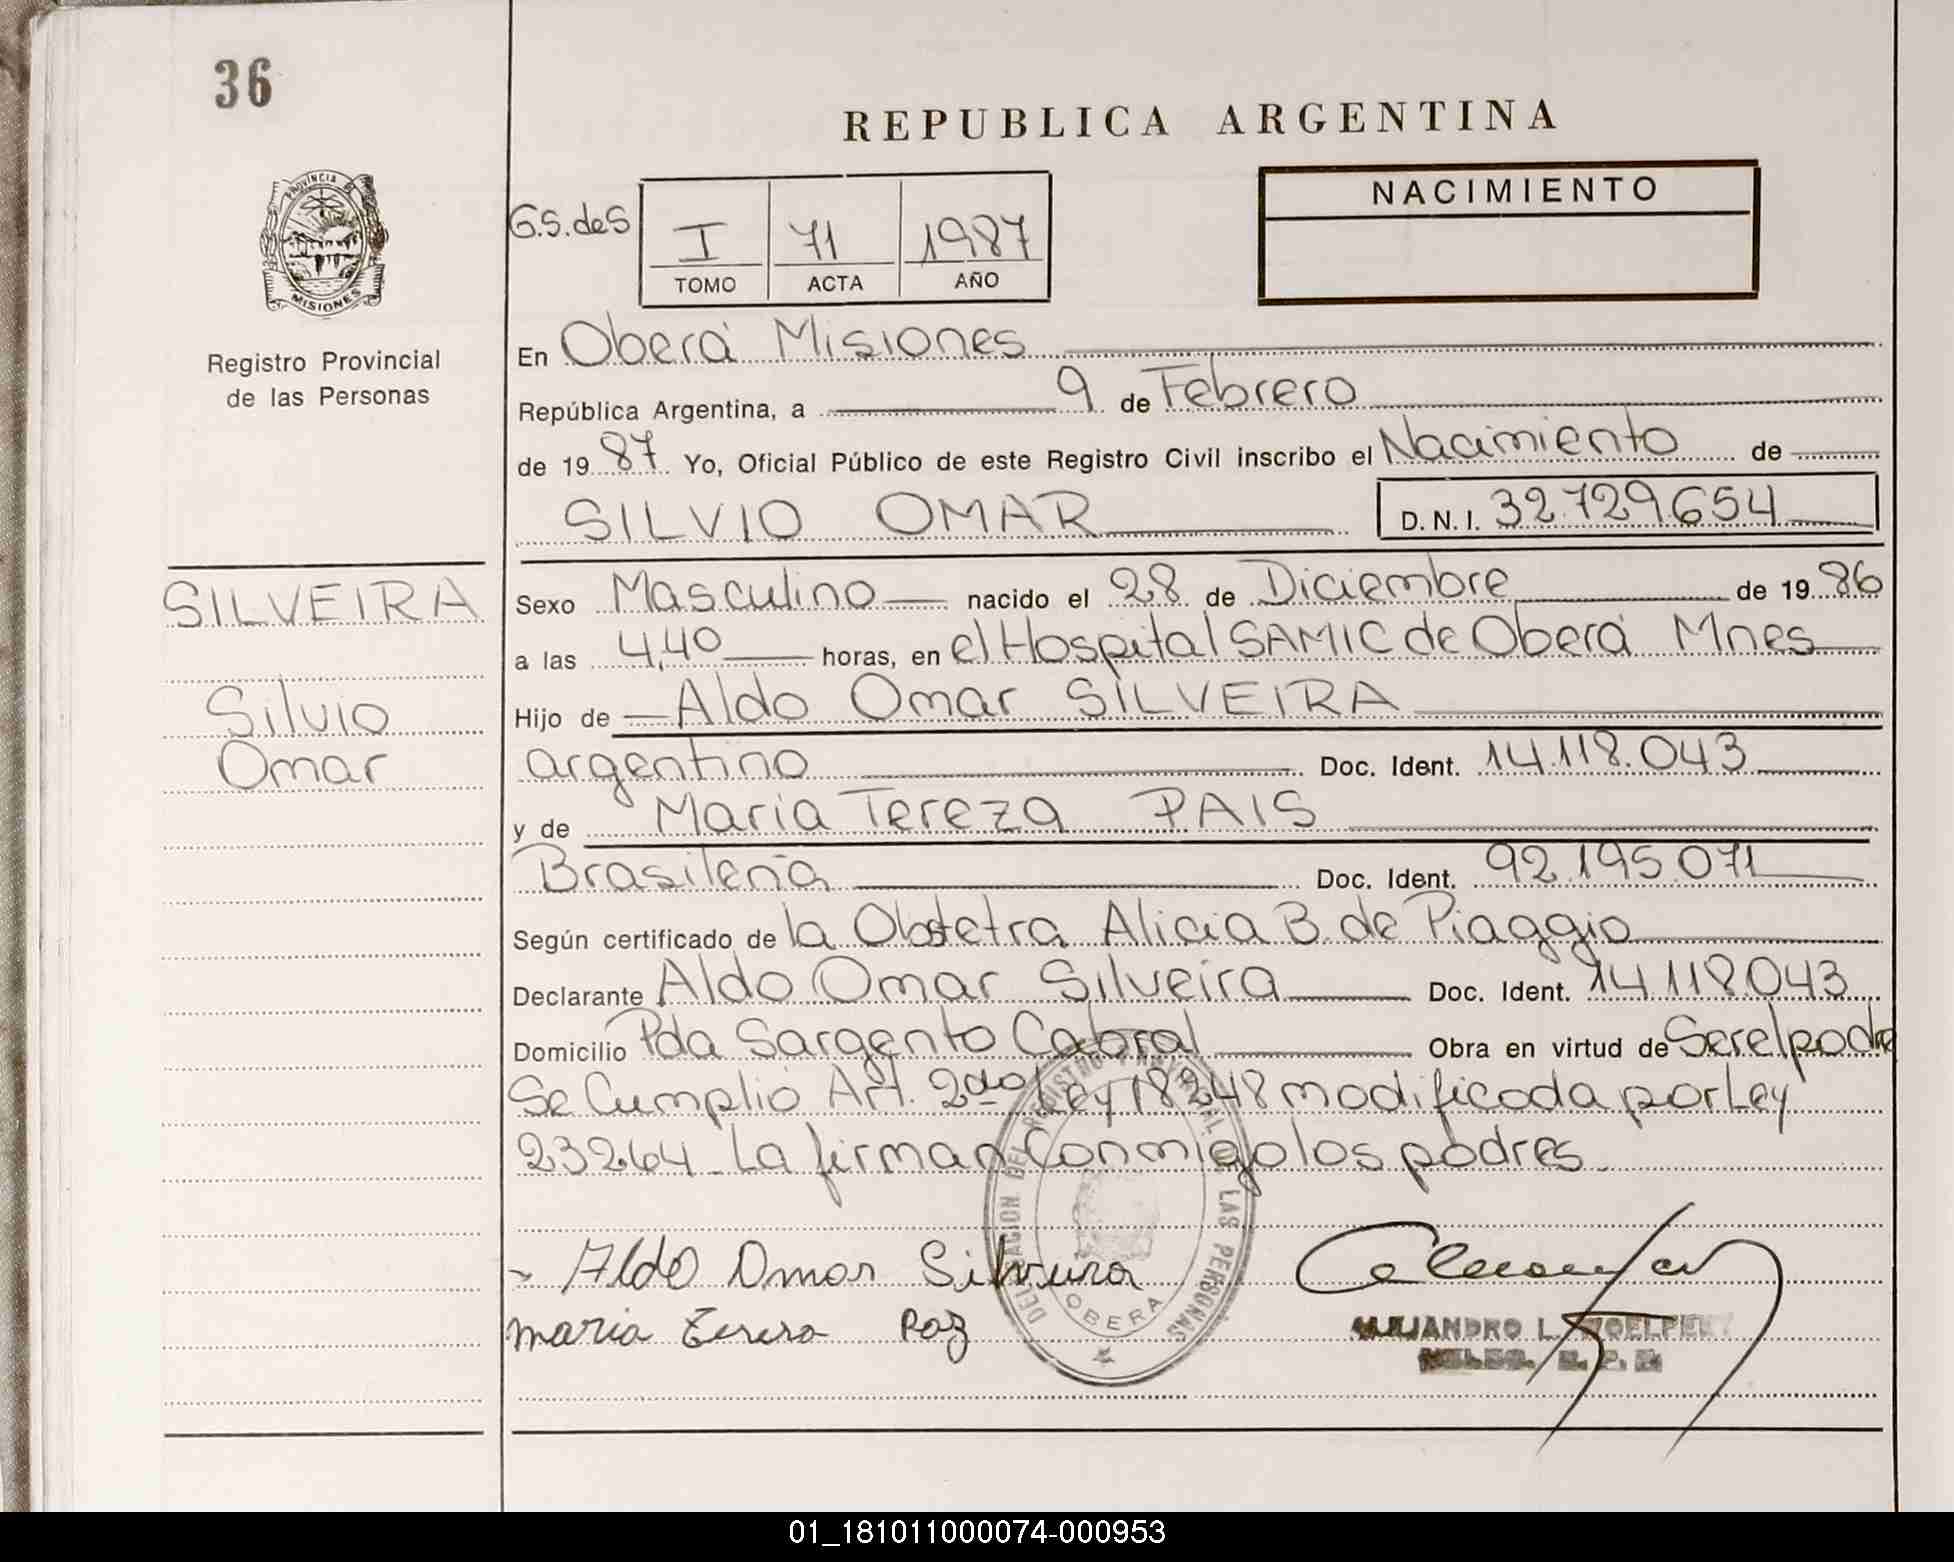 36
REPUBLICA ARGENTINA
PROVINCIA DE
MISIONES
Registro Provincial
de las Personas
G.S. de S
I 71 1987
TOMO ACTA AÑO
NACIMIENTO
En Oberá Misiones
República Argentina, a 9 de Febrero
de 1987 Yo, Oficial Público de este Registro Civil inscribo el Nacimiento de
SILVIO OMAR D. N. I. 32.729.654
SILVEIRA
Silvio
Omar
Sexo Masculino nacido el 28 de Diciembre de 1986
a las 4,40 horas, en el Hospital SAMIC de Oberá Mnes
Hijo de Aldo Omar SILVEIRA
argentino Doc. Ident. 14.118.043
y de Maria Tereza PAIS
Brasileña Doc. Ident. 92.195.071
Según certificado de la Obstetra Alicia B. de Piaggio
Declarante Aldo Omar Silveira Doc. Ident. 14.118.043
Domicilio Pda Sargento Cabral Obra en virtud de Ser el padre
Se Cumplió Art. 2do Ley 18248 modificada por Ley
23264. La firman Conmigo los padres
Aldo Omar Silveira
maria Tereza
DELEGACION DEL REGISTRO PROVINCIAL DE LAS PERSONAS
OBERA
ALEJANDRO L.
01_181011000074-000953